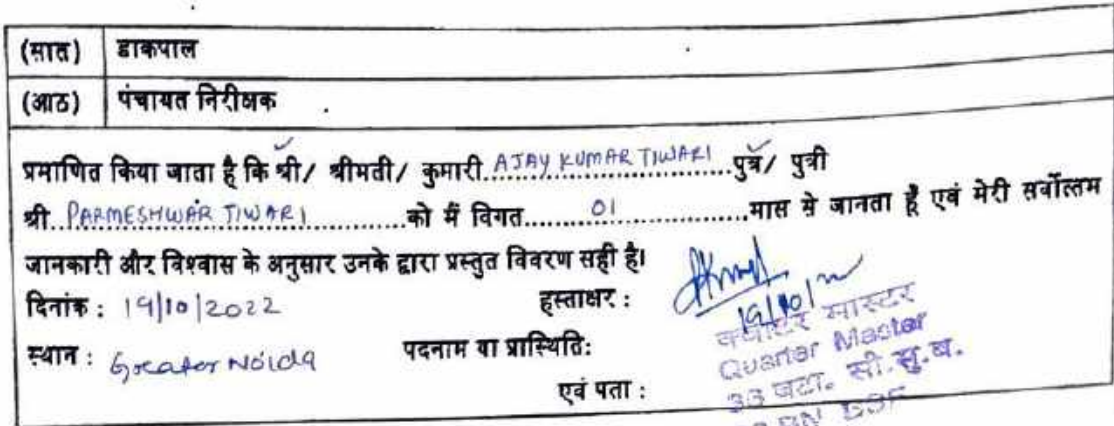 (सात) डाकपाल
(आठ) पंचायत निरीक्षक
प्रमाणित किया जाता है कि श्री/ श्रीमती/ कुमारी AJAY KUMAR TIWARI पुत्र/ पुत्री
श्री PARMESHWAR TIWARI को मैं विगत 01 मास से जानता हूँ एवं मेरी सर्वोत्तम
जानकारी और विश्वास के अनुसार उनके द्वारा प्रस्तुत विवरण सही है।
दिनांक : 19/10/2022 हस्ताक्षर :
19/10/22
स्थान : Greater Noida पदनाम या प्रास्थिति:
क्वार्टर मास्टर
Quarter Master
एवं पता :
33 बटा. सी.सु.ब.
BN BSF